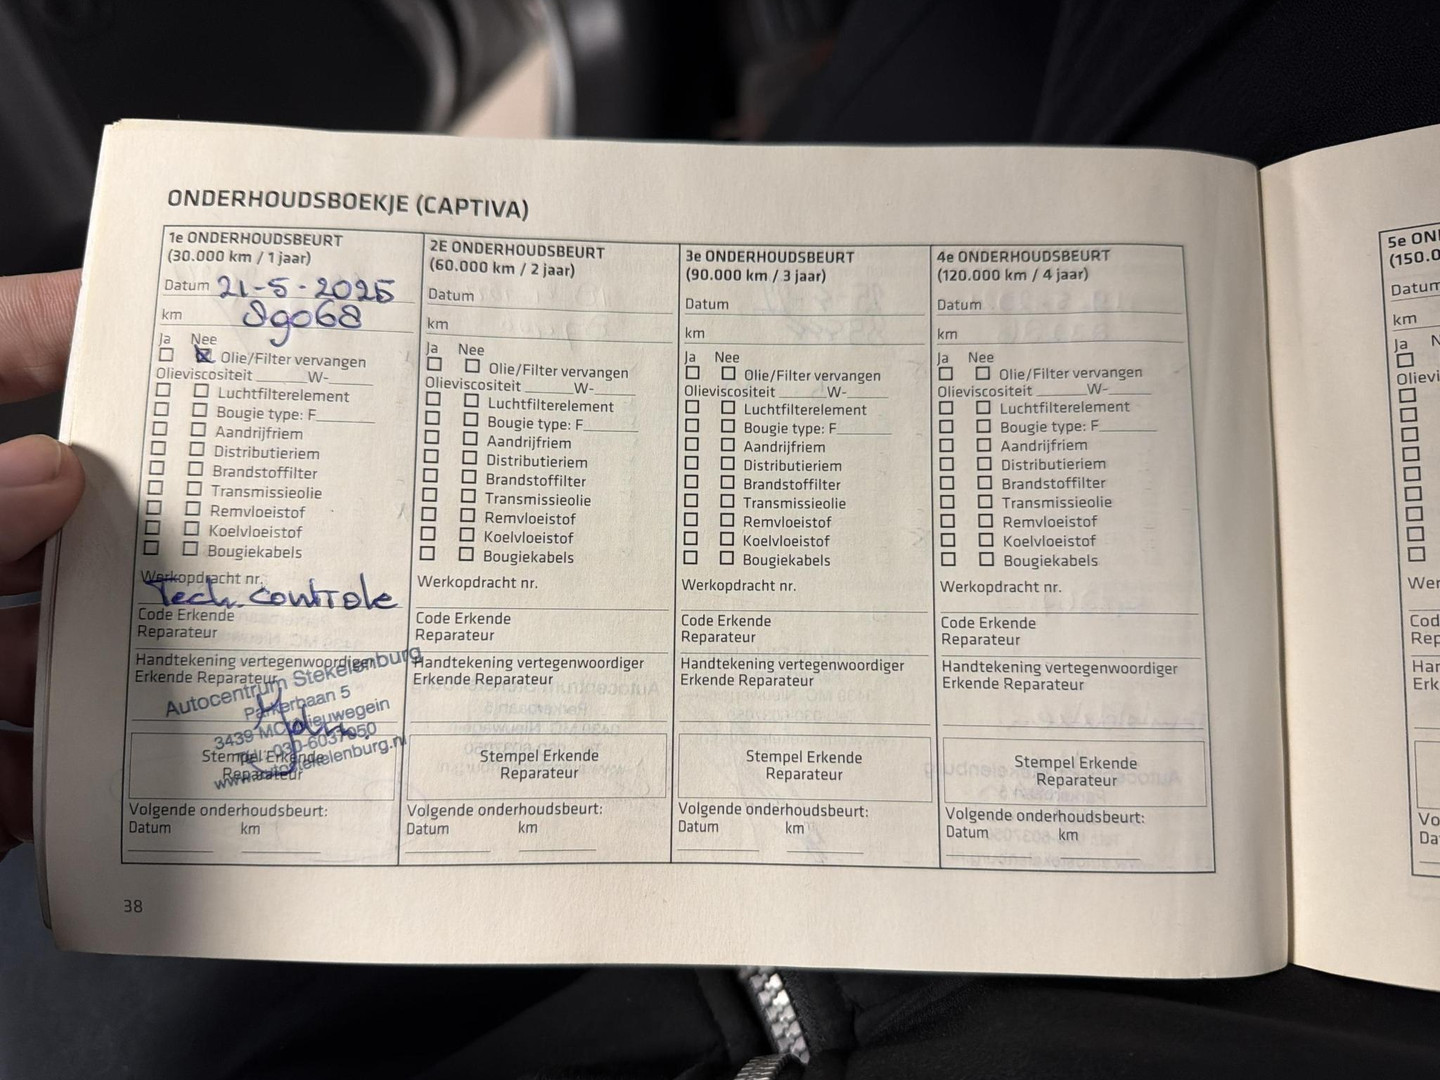 ONDERHOUDSBOEKJE (CAPTIVA)
1e ONDERHOUDSBEURT
(30.000 km / 1 jaar)
Datum 21-5-2025
km 89068
Ja Nee
Olie/Filter vervangen
Olieviscositeit ______W-______
Luchtfilterelement
Bougie type: F________
Aandrijfriem
Distributieriem
Brandstoffilter
Transmissieolie
Remvloeistof
Koelvloeistof
Bougiekabels
Werkopdracht nr.
Tech. controle
Code Erkende
Reparateur
Handtekening vertegenwoordiger
Erkende Reparateur
Autocentrum Stekelenburg
Parkerbaan 5
3439 MC Nieuwegein
Tel. 030-6037050
www.autostekelenburg.nl
Stempel Erkende
Reparateur
Volgende onderhoudsbeurt:
Datum km
2E ONDERHOUDSBEURT
(60.000 km / 2 jaar)
Datum
km
Ja Nee
Olie/Filter vervangen
Olieviscositeit ______W-______
Luchtfilterelement
Bougie type: F________
Aandrijfriem
Distributieriem
Brandstoffilter
Transmissieolie
Remvloeistof
Koelvloeistof
Bougiekabels
Werkopdracht nr.
Code Erkende
Reparateur
Handtekening vertegenwoordiger
Erkende Reparateur
Stempel Erkende
Reparateur
Volgende onderhoudsbeurt:
Datum km
3e ONDERHOUDSBEURT
(90.000 km / 3 jaar)
Datum
km
Ja Nee
Olie/Filter vervangen
Olieviscositeit ______W-______
Luchtfilterelement
Bougie type: F________
Aandrijfriem
Distributieriem
Brandstoffilter
Transmissieolie
Remvloeistof
Koelvloeistof
Bougiekabels
Werkopdracht nr.
Code Erkende
Reparateur
Handtekening vertegenwoordiger
Erkende Reparateur
Stempel Erkende
Reparateur
Volgende onderhoudsbeurt:
Datum km
4e ONDERHOUDSBEURT
(120.000 km / 4 jaar)
Datum
km
Ja Nee
Olie/Filter vervangen
Olieviscositeit ______W-______
Luchtfilterelement
Bougie type: F________
Aandrijfriem
Distributieriem
Brandstoffilter
Transmissieolie
Remvloeistof
Koelvloeistof
Bougiekabels
Werkopdracht nr.
Code Erkende
Reparateur
Handtekening vertegenwoordiger
Erkende Reparateur
Stempel Erkende
Reparateur
Volgende onderhoudsbeurt:
Datum km
38
5e
(150.0
Datum
km
Ja